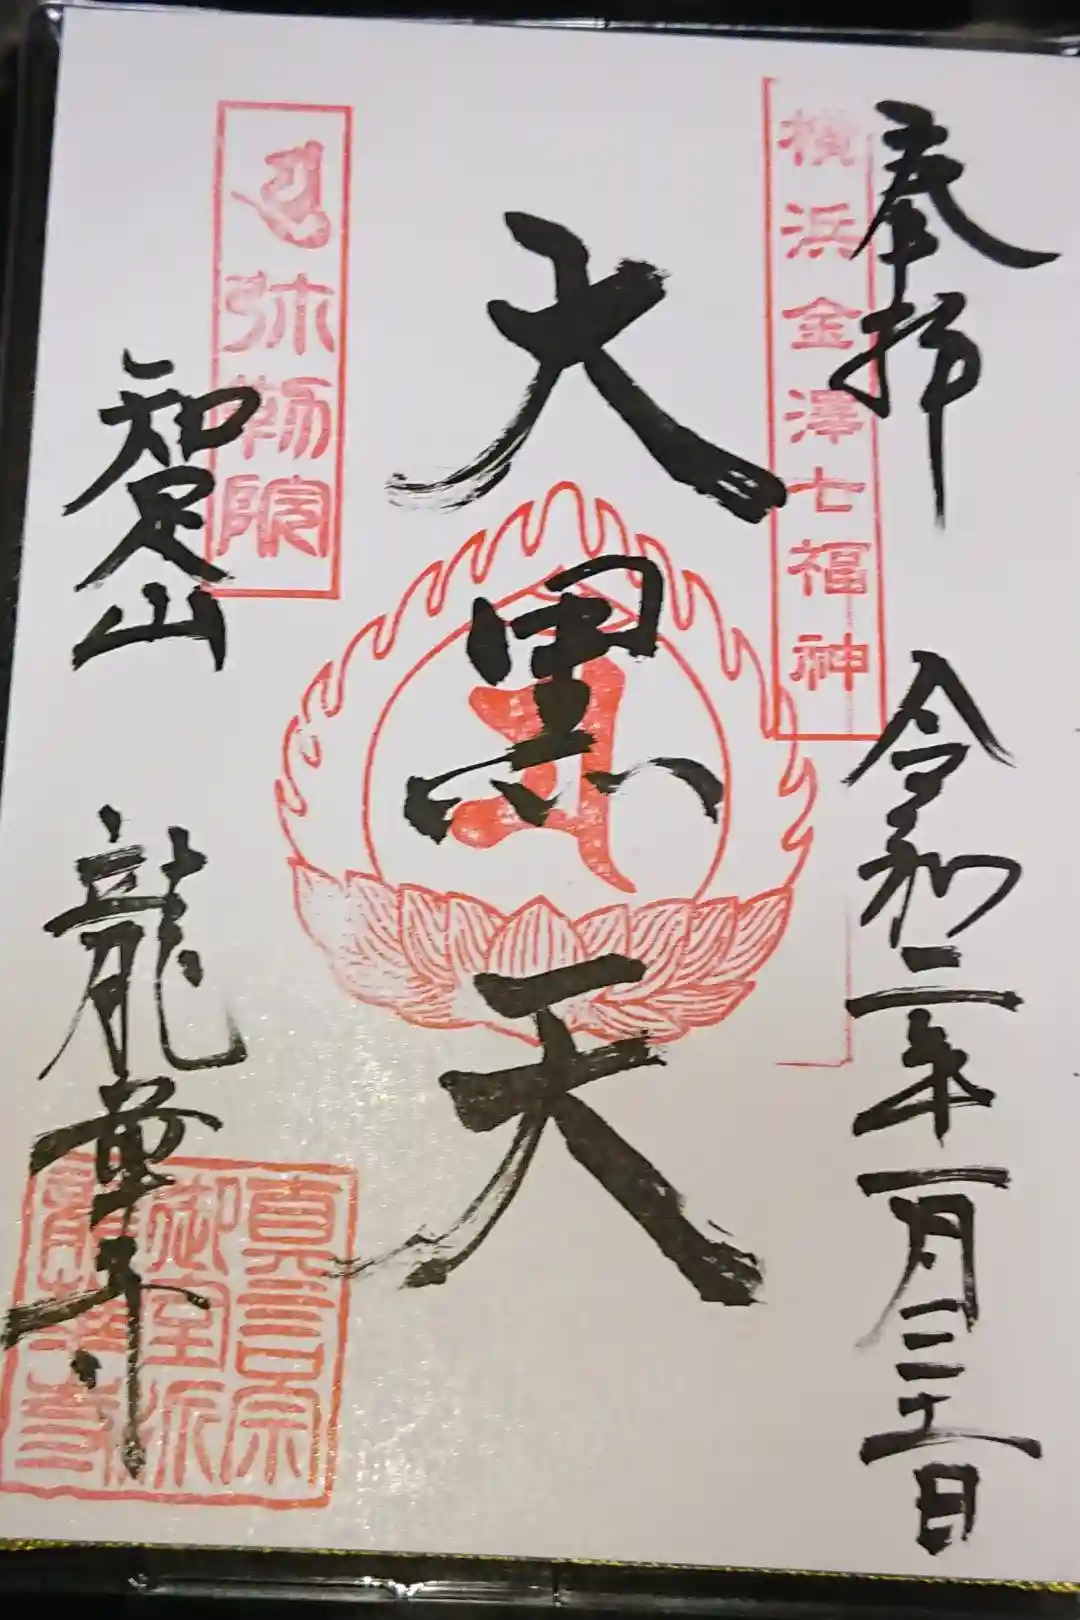 奉拝 令和二年一月三十一日
横浜金澤七福神
大黒天
弥勒院
知足山 龍華寺
真言宗
御室派
龍華寺